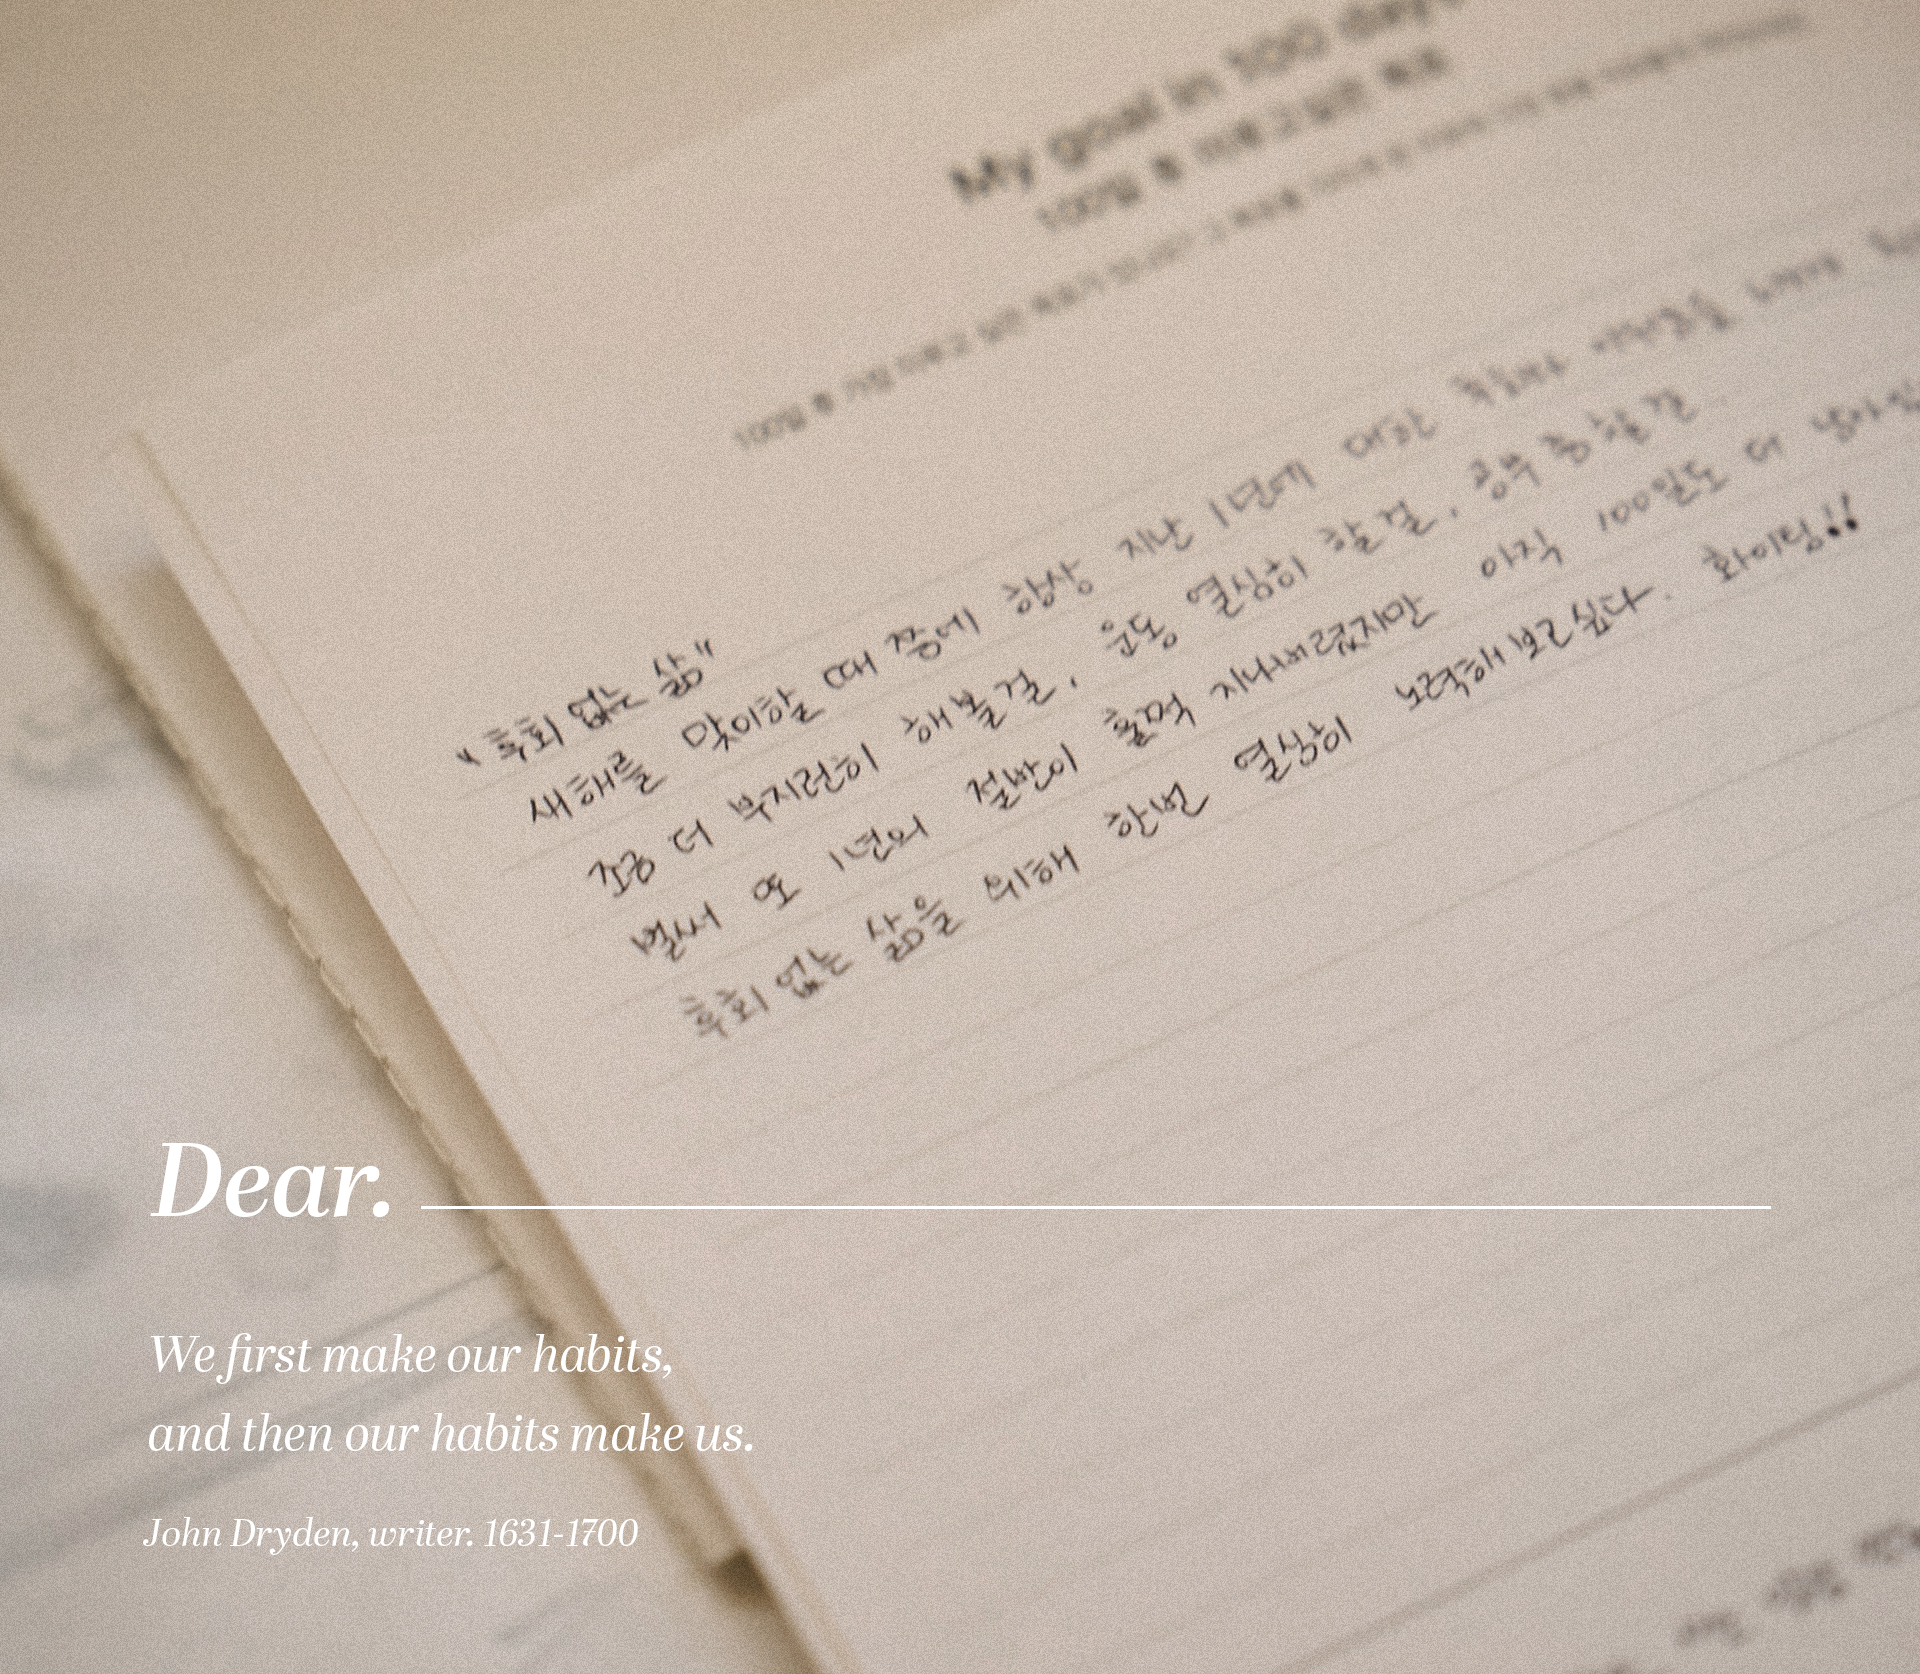 My goal in 100 days
100일 후 이루고 싶은 목표
100일 후 가장 이루고 싶은 목표가
"후회 없는 삶"
새해를 맞이할 때 쯤에 항상 지난 1년에 대한
조금 더 부지런히 해볼걸, 운동 열심히 할걸, 공부 좀 할걸.
벌써 또 1년의 절반이 훌쩍 지나버렸지만 아직 100일도 더
후회 없는 삶을 위해 한번 열심히 노력해보고 싶다. 화이팅!!
Dear.
We first make our habits,
and then our habits make us.
John Dryden, writer. 1631-1700